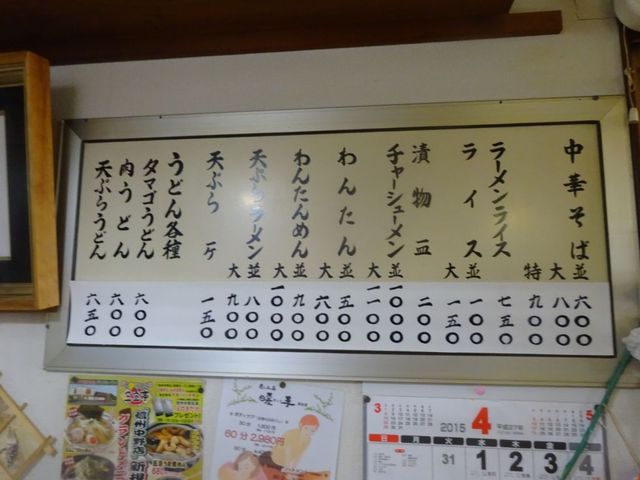 中華そば 並 六〇〇
大 八〇〇
特 九〇〇
ラーメンライス 七五〇
ライス 並 一〇〇
大 一五〇
漬物 皿 二〇〇
チャーシューメン 並 一〇〇〇
大 一一〇〇
わんたん 並 五〇〇
大 六〇〇
わんたんめん 並 九〇〇
大 一〇〇〇
天ぷらラーメン 並 八〇〇
大 九〇〇
天ぷら 一ヶ 一五〇
うどん各種
タマゴうどん 六〇〇
肉うどん 六〇〇
天ぷらうどん 六五〇
信州中野店
プレゼント!
30分
60分 2,980円
3
2015 4 平成27年
5
日 月 火 水 木 金 土
31 1 2 3 4